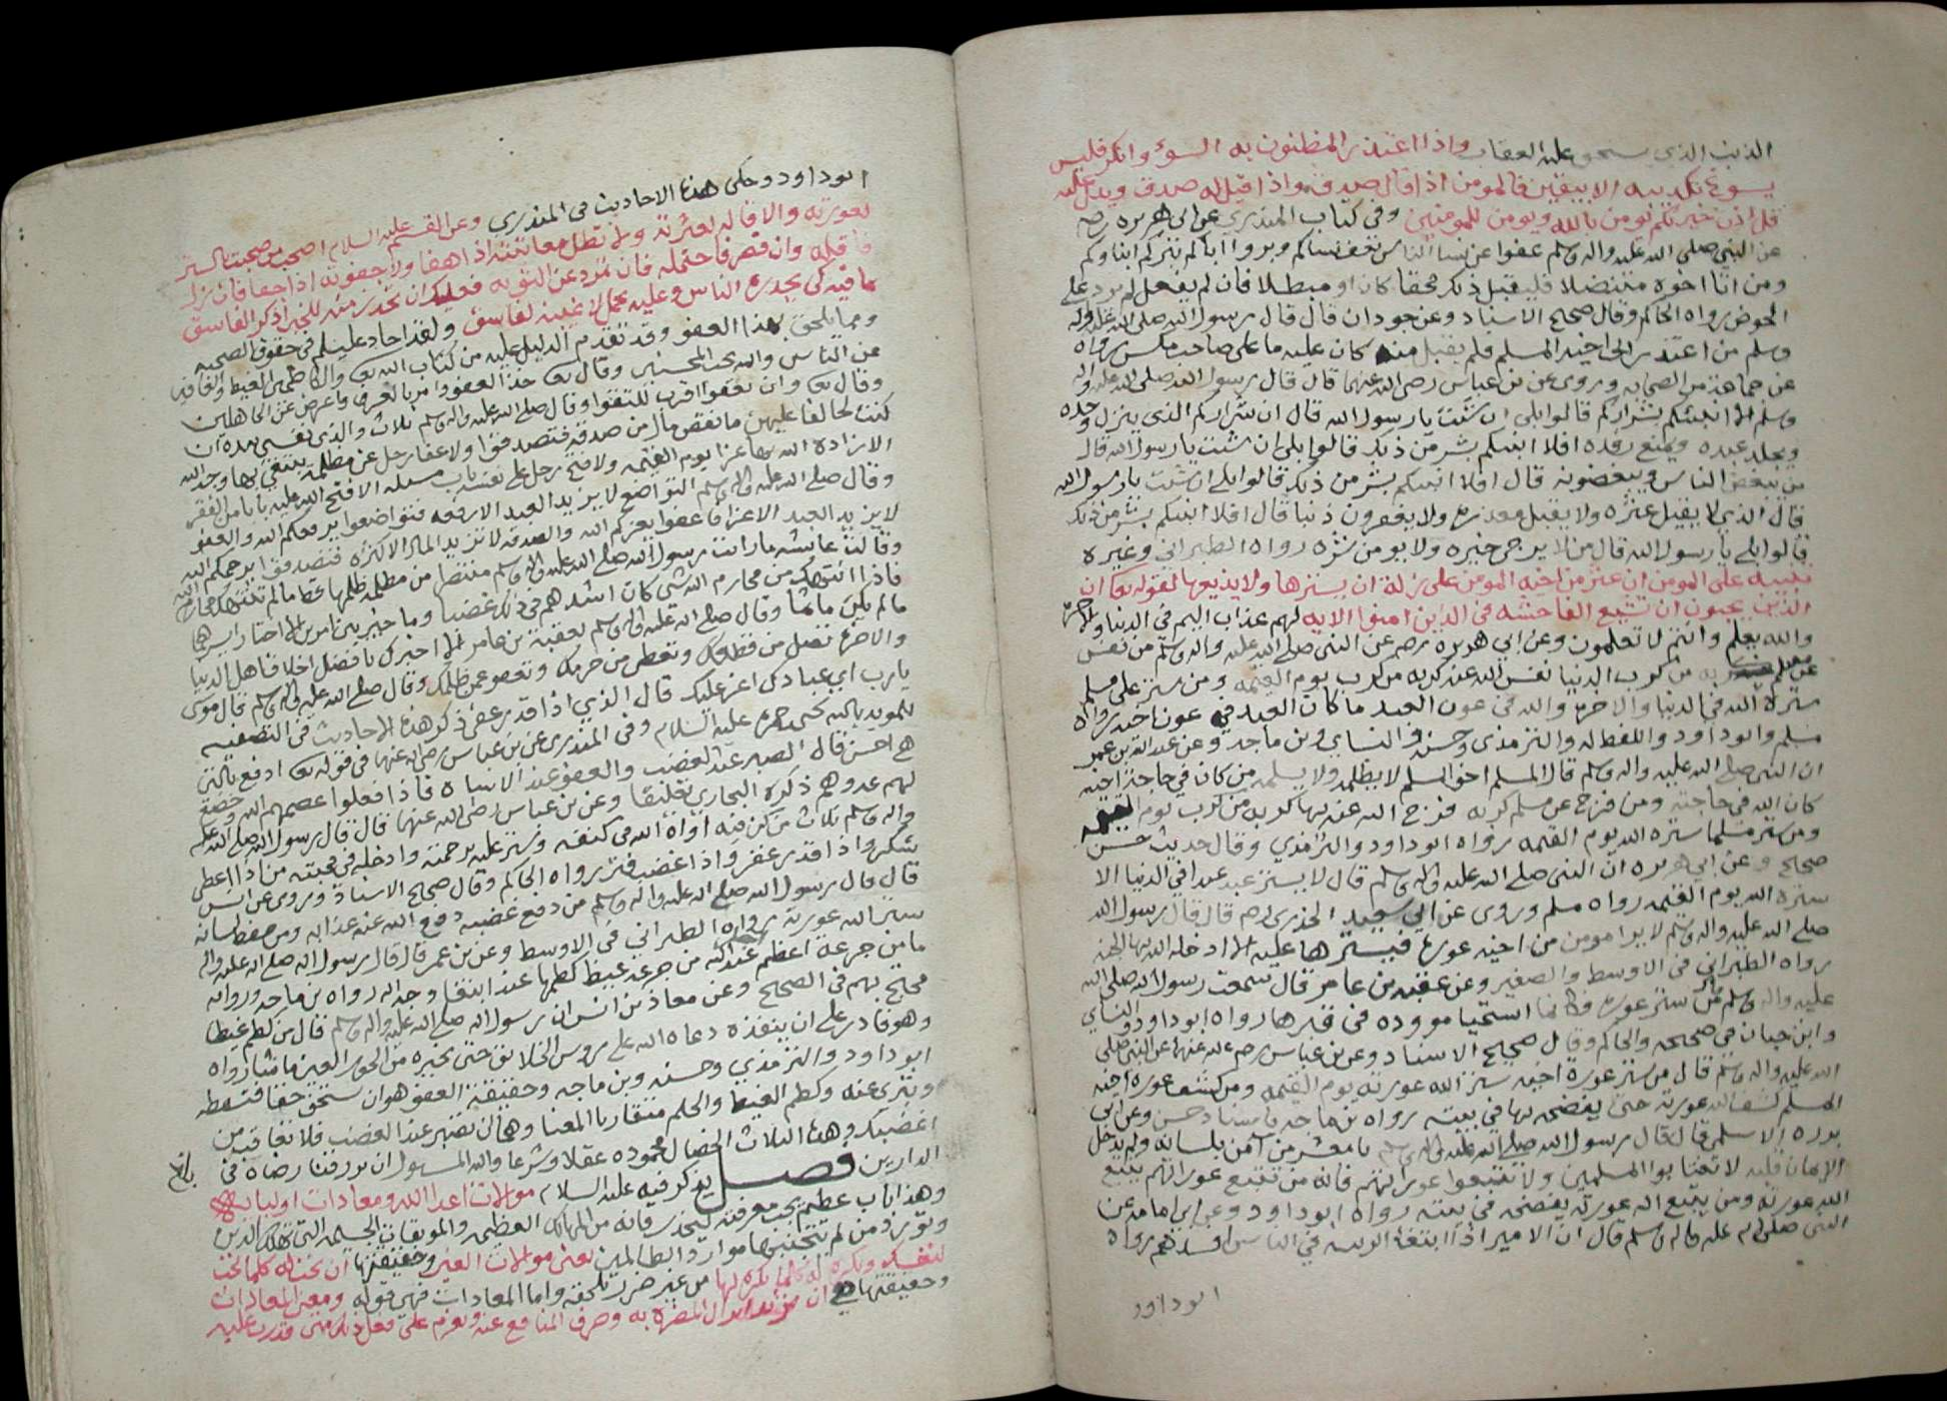 الذنب الذي يستحق عليه العقاب واذا اعتذر المظنون به السوء وانكر فليس
يسوغ تكذيبه الا بيقين فالمومن اذا قال صدق واذا قيل له صدق ويدل عليه
قل اذن خير لكم يومن بالله ويومن للمومنين وفي كتاب المنذري عن ابي هريره رضه
عن النبي صلى الله عليه واله وسلم عفوا عن نسا الناس تعف نساكم وبروا اباكم تبركم ابناوكم
ومن اتا اخوه متنصلا فليقبل ذلك محقا كان او مبطلا فان لم يفعل لم يرد علي
الحوض رواه الحاكم وقال صحيح الاسناد وعن جودان قال قال رسول الله صلى الله عليه واله
وسلم من اعتذر الى اخيه المسلم فلم يقبل منه كان عليه ما على صاحب مكس رواه
عن جماعة من الصحابه وروى عن بن عباس رضي الله عنهما قال قال رسول الله صلى الله عليه واله
وسلم الا انبئكم بشراركم قالوا بلى ان شئت يا رسول الله قال ان شراركم الذي ينزل وحده
ويجلد عبده ويمنع رفده افلا انبئكم بشر من ذلك قالوا بلى ان شئت يا رسول الله قال
من يبغض الناس ويبغضونه قال افلا انبئكم بشر من ذلك قالوا بلى ان شئت يا رسول الله
قال الذي لا يقيل عثره ولا يقبل معذره ولا يغفرون ذنبا قال افلا انبئكم بشر من ذلك
قالوا بلى يا رسول الله قال من لا يرجى خيره ولا يومن شره رواه الطبراني وغيره
تنبيه على المومن ان عثر من اخيه المومن على زلة ان يسترها ولا يذيعها لقوله تعا ان
الذين يحبون ان تشيع الفاحشه في الذين امنوا الايه لهم عذاب اليم في الدنيا والاخره
والله يعلم وانتم لا تعلمون وعن ابي هريره رضه عن النبي صلى الله عليه واله وسلم من نفس
عن مسلم كربه من كرب الدنيا نفس الله عنه كربه من كرب يوم القيمه ومن ستر على مسلم
ستره الله في الدنيا والاخره والله في عون العبد ما كان العبد في عون اخيه رواه
مسلم وابو داود واللفظ له والترمذي وحسنه والنساي وبن ماجه وعن عبد الله بن عمر
ان النبي صلى الله عليه واله وسلم قال المسلم اخو المسلم لا يظلمه ولا يسلمه من كان في حاجة اخيه
كان الله في حاجته ومن فرج عن مسلم كربه فرج الله عنه بها كربه من كرب يوم القيمه
ومن ستر مسلما ستره الله يوم القيمه رواه ابو داود والترمذي وقال حديث حسن
صحيح وعن ابي هريره ان النبي صلى الله عليه واله وسلم قال لا يستر عبد عبدا في الدنيا الا
ستره الله يوم القيمه رواه مسلم وروى عن ابي سعيد الخذري رضه قال قال رسول الله
صلى الله عليه واله وسلم لا يرا مومن من اخيه عوره فيسترها عليه الا ادخله الله بها الجنه
رواه الطبراني في الاوسط والصغير وعن عقبه بن عامر قال سمعت رسول الله صلى الله
عليه واله وسلم من ستر عوره فكانما استحيا مووده في قبرها رواه ابو داود والنساي
وابن حبان في صحيحه والحاكم وقال صحيح الاسناد وعن بن عباس رضي الله عنهما عن النبي صلى
الله عليه واله وسلم قال من ستر عورة اخيه ستر الله عورته يوم القيمه ومن كشف عورة اخيه
المسلم كشف الله عورته حتى يفضحه بها في بيته رواه بن ماجه باسناد حسن وعن ابي
برده الاسلمي قال قال رسول الله صلى الله عليه واله وسلم يا معشر من آمن بلسانه ولم يدخل
الايمان قلبه لا تغتابوا المسلمين ولا تتبعوا عوراتهم فانه من تتبع عوراتهم يتبع
الله عورته ومن يتبع الله عورته يفضحه في بيته رواه ابو داود وعن ابي امامه عن
النبي صلى الله عليه واله وسلم قال ان الامير اذا ابتغا الريبه في الناس افسدهم رواه
ابو داود
ابو داود وحكى هذه الاحاديث في المنذري وعن القسم عليه السلام اصحب من صحبت بالستر
لعورته والاقاله لعثرته ولا تطل معاتبته اذا هفا ولا جفوته اذا جفا فان زل
فاقله وان قصر فاحتمله فان تمرد عن التوبه فعليك ان تحذر منه للخبر اذكر الفاسق
بما فيه كي يحذره الناس وعليه يحمل لا غيبة لفاسق ولقد اجاد عليلم في حقوق الصحبه
ومما يلحق بهذا العفو وقد تقدم الدليل عليه من كتاب الله تعا والكاظمين الغيظ والعافين
عن الناس والله يحب المحسنين وقال تعا خذ العفو وامر بالعرف واعرض عن الجاهلين
وقال تعا وان تعفوا اقرب للتقوا وقال صلى الله عليه واله وسلم ثلاث والذي نفسي بيده ان
كنت لحالفا عليهن ما نقص مال من صدقة فتصدقوا ولا عفا رجل عن مظلمة يبتغي بها وجه الله
الا زاده الله بها عزا يوم القيمه ولا فتح رجل على نفسه باب مسئله الا فتح الله عليه بابا من الفقر
وقال صلى الله عليه واله وسلم التواضع لا يزيد العبد الا رفعه فتواضعوا يرفعكم الله والعفو
لا يزيد العبد الا عزا فاعفوا يعزكم الله والصدقه لا تزيد المال الا كثره فتصدقوا يرحمكم الله
وقالت عايشه ما رايت رسول الله صلى الله عليه واله وسلم منتصرا من مظلمة ظلمها قط ما لم تنتهك محارم الله
فاذا انتهك من محارم الله شي كان اشدهم في ذلك غضبا وما خير بين امرين الا اختار ايسرهما
ما لم يكن ماثما وقال صلى الله عليه واله وسلم لعقبة بن عامر الا اخبرك بافضل اخلاق اهل الدنيا
والاخره تصل من قطعك وتعطي من حرمك وتعفو عمن ظلمك وقال صلى الله عليه واله وسلم قال موسى
يا رب اي عبادك اعز عليك قال الذي اذا قدر عفى ذكر هذه الاحاديث في التصفيه
للمويد بالله يحيى بن حمزه عليه السلام وفي المنذري عن بن عباس رضي الله عنهما في قوله تعا ادفع بالتي
هي احسن قال الصبر عند الغضب والعفو عند الاساه فاذا فعلوا عصمهم الله وخضع
لهم عدوهم ذكره البخاري تعليقا وعن بن عباس رضي الله عنهما قال قال رسول الله صلى الله عليه
واله وسلم ثلاث من كن فيه اواه الله في كنفه وستر عليه برحمته وادخله في محبته من اذا اعطي
شكر واذا قدر غفر واذا غضب فتر رواه الحاكم وقال صحيح الاسناد وروى عن انس
قال قال رسول الله صلى الله عليه واله وسلم من دفع غضبه دفع الله عنه عذابه ومن حفظ لسانه
ستر الله عورته رواه الطبراني في الاوسط وعن بن عمر قال قال رسول الله صلى الله عليه واله
ما من جرعة اعظم عند الله من جرعة غيظ كظمها عبد ابتغا وجه الله رواه بن ماجه ورواته
محتج بهم في الصحيح وعن معاذ بن انس ان رسول الله صلى الله عليه واله وسلم قال من كظم غيظا
وهو قادر على ان ينفذه دعاه الله على روس الخلايق حتى يخيره من الحور العين ما شا رواه
ابو داود والترمذي وحسنه وبن ماجه وحقيقة العفو هو ان تستحق حقا فتسقطه
وتبرى عنه وكظم الغيظ والحلم متقاربا المعنا وهما ان تصبر عند الغضب فلا تعاقب من
اغضبك وهذه الثلاث الخصال محموده عقلا وشرعا والله المسوول ان يرزقنا رضاه في
الدارين فصل يذكر فيه عليه السلام موالات اعدا الله ومعادات اوليائه
بلغ
وهذا باب عظيم يجب معرفته ليحذر فانه من المهالك العظمى والموبقات الجسيمه التي تهلك الدين
وتورد من لم يتجنبها موارد الظالمين يعني موالات الغير وحقيقتها ان تحب له كلما تحب
لنفسك وتكره له كلما تكره لها من غير ضرر يلحقه واما المعادات فهي قوله ومعنى المعادات
وحقيقتها هي ان تريد انزال المضره به وصرف المنافع عنه وتعزم على فعل ذلك متى قدرت عليه